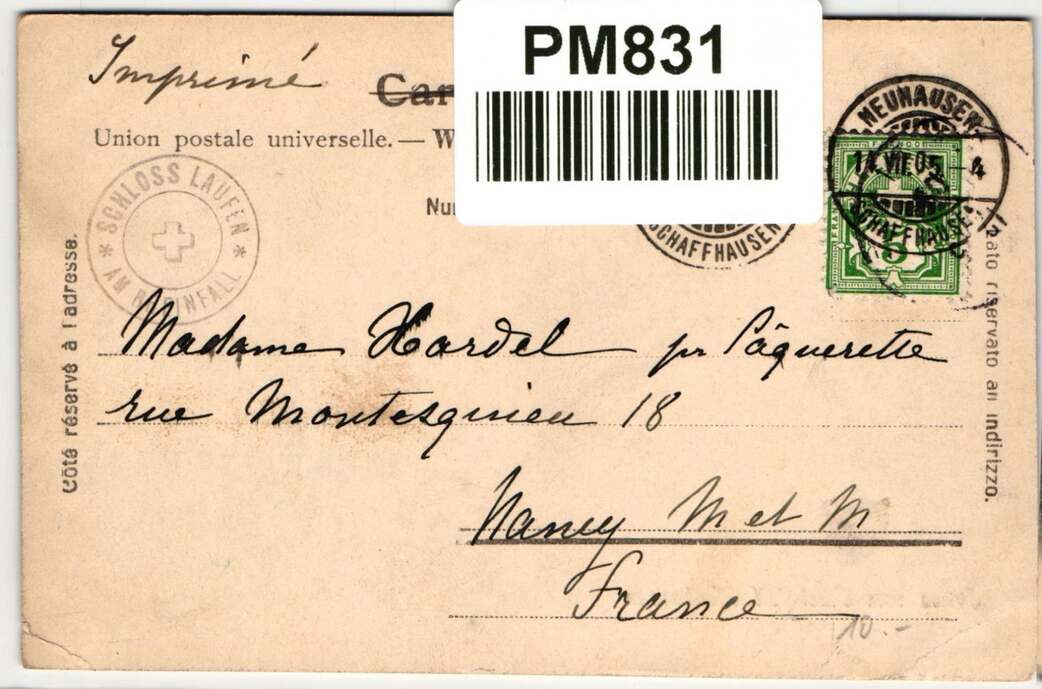 PM831
Imprimé
Car
Union postale universelle. — W
Nu
SCHLOSS LAUFEN
AM RHEINFALL
NEUHAUSEN
14. VII. 05. 4
SCHAFFHAUSEN
SCHAFFHAUSEN
5
FRANCO
Côté réservé à l'adresse.
riservato an indirizzo.
Madame Hardel pr Pâquerette
rue Montesquieu 18
Nancy M et M
France
10.-